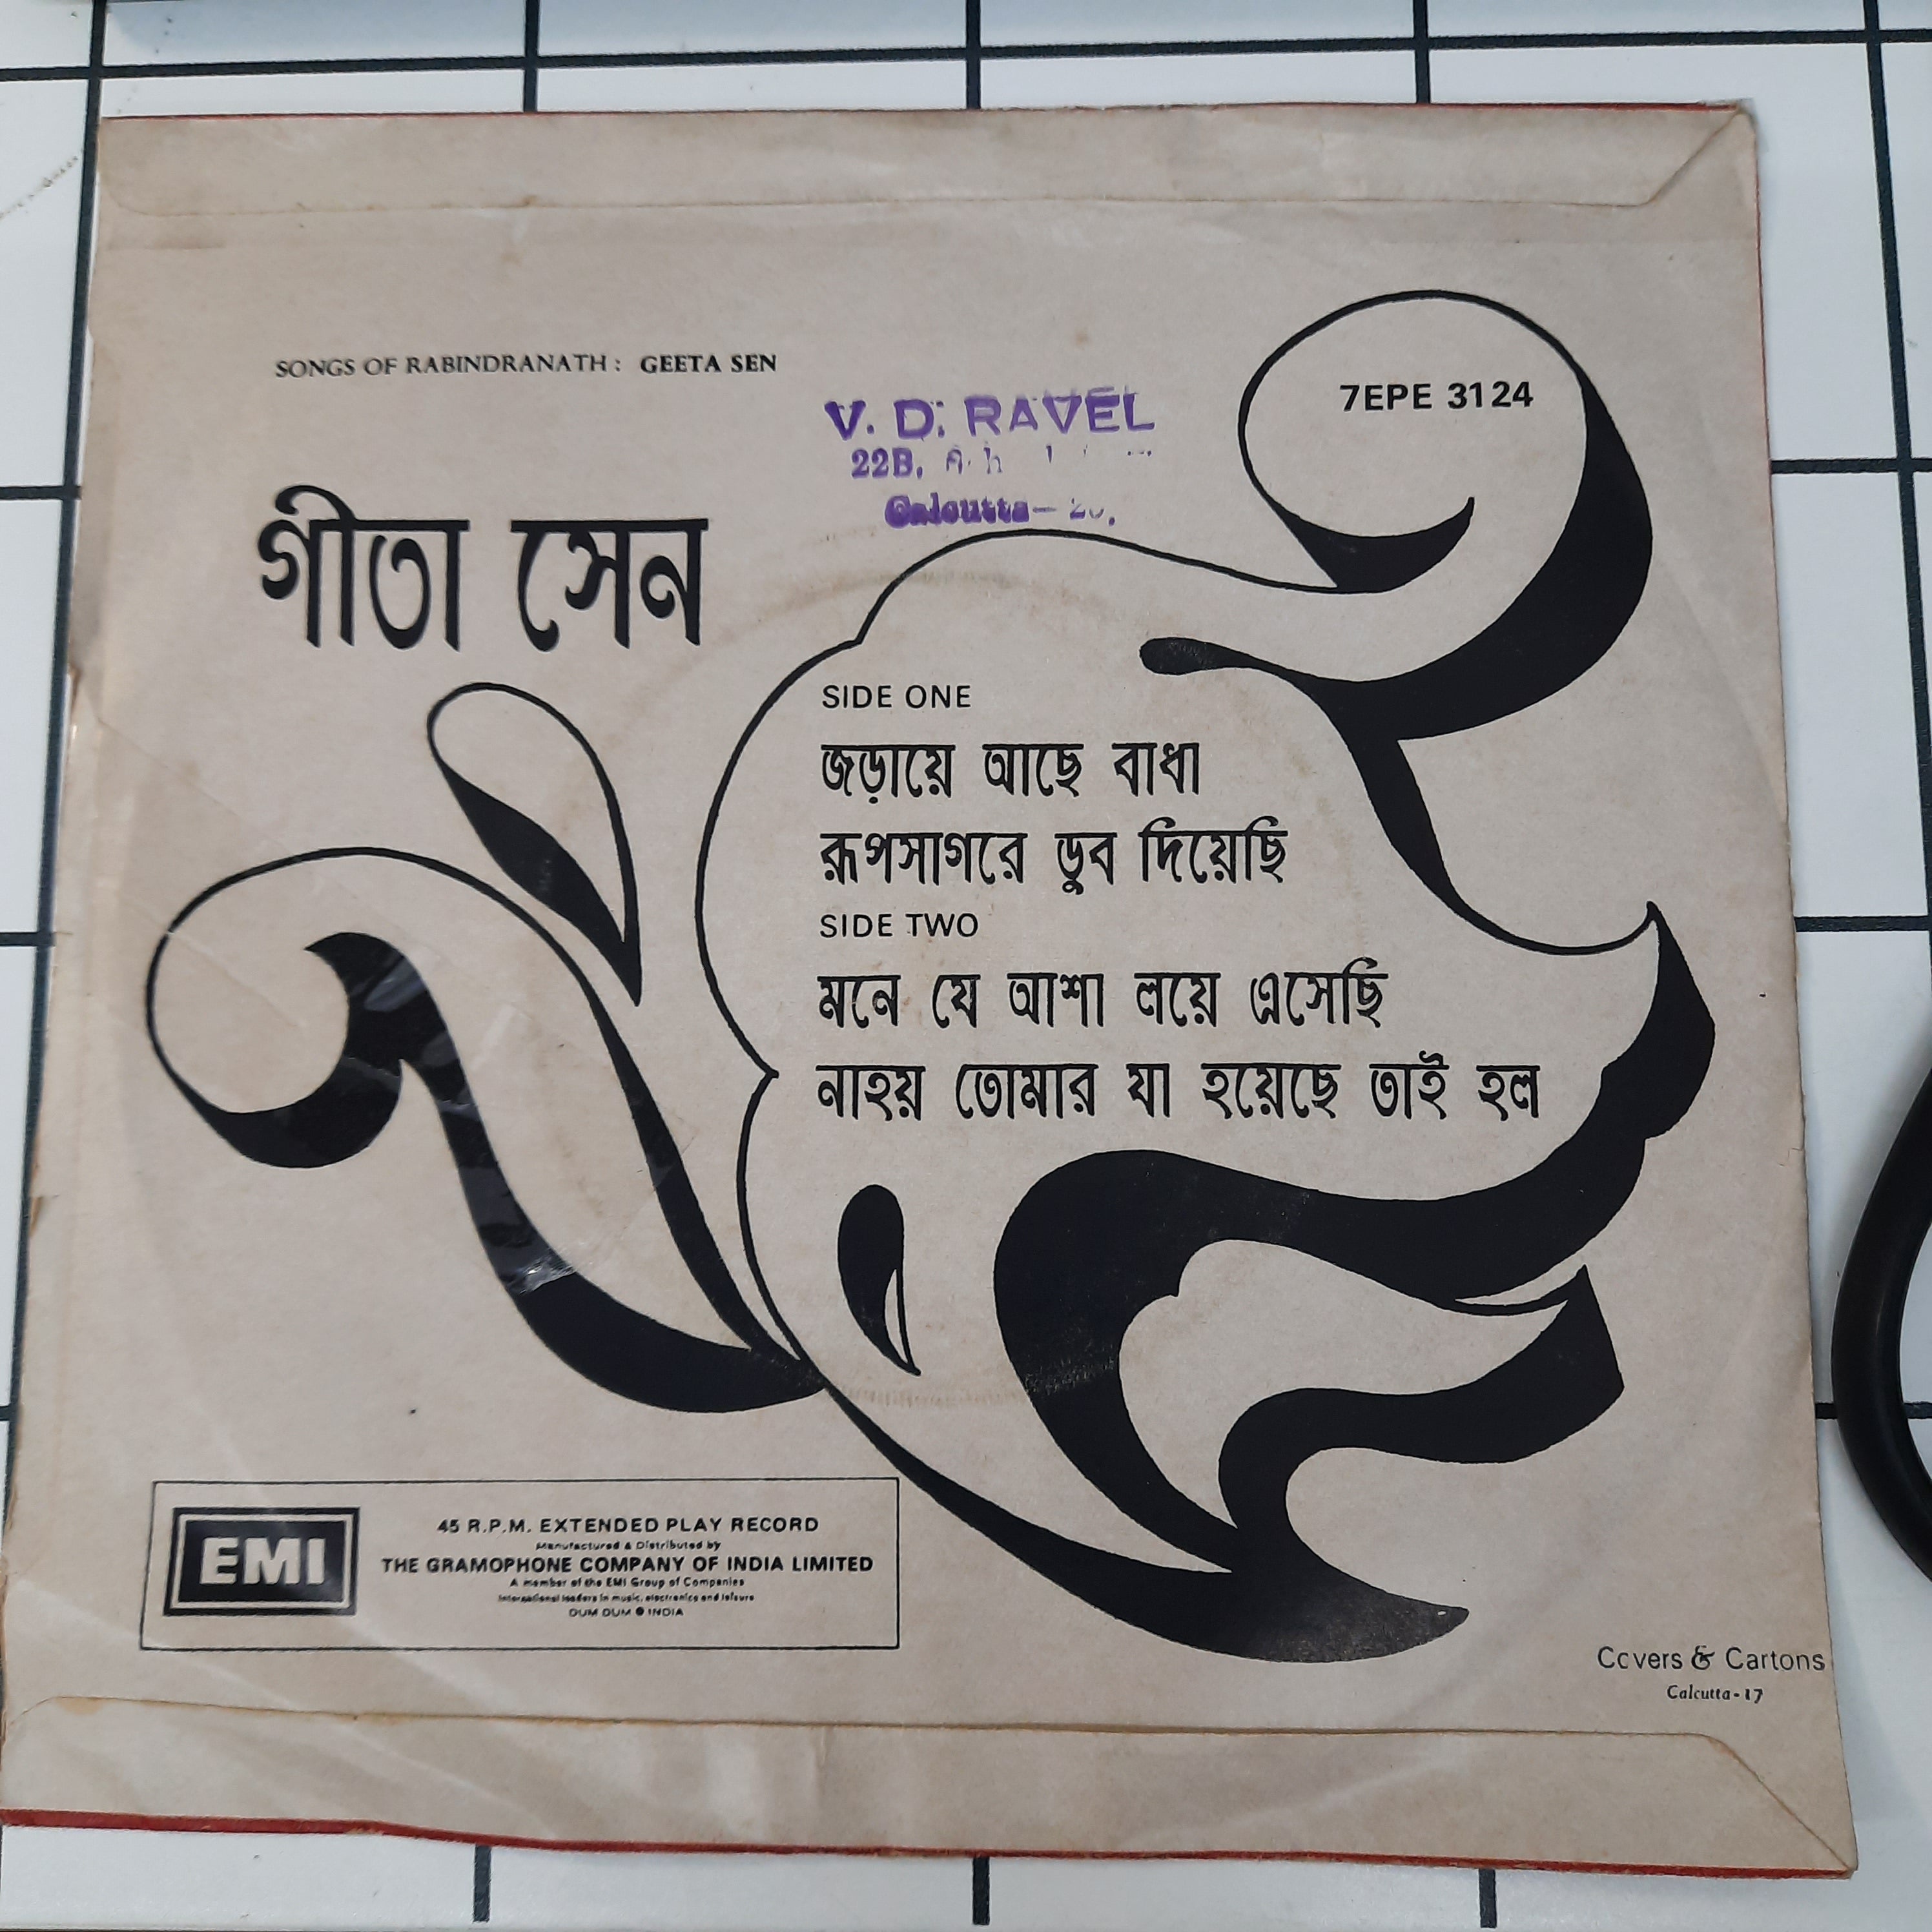 SONGS OF RABINDRANATH : GEETA SEN
7EPE 3124
V. D. RAVEL
22B,
Calcutta–
গীতা সেন
SIDE ONE
জড়ায়ে আছে বাধা
রূপসাগরে ডুব দিয়েছি
SIDE TWO
মনে যে আশা লয়ে এসেছি
নাহয় তোমার যা হয়েছে তাই হল
EMI
45 R.P.M. EXTENDED PLAY RECORD
Manufactured & Distributed by
THE GRAMOPHONE COMPANY OF INDIA LIMITED
A member of the EMI Group of Companies
International leaders in music, electronics and leisure
DUM DUM ● INDIA
Covers & Cartons
Calcutta-17